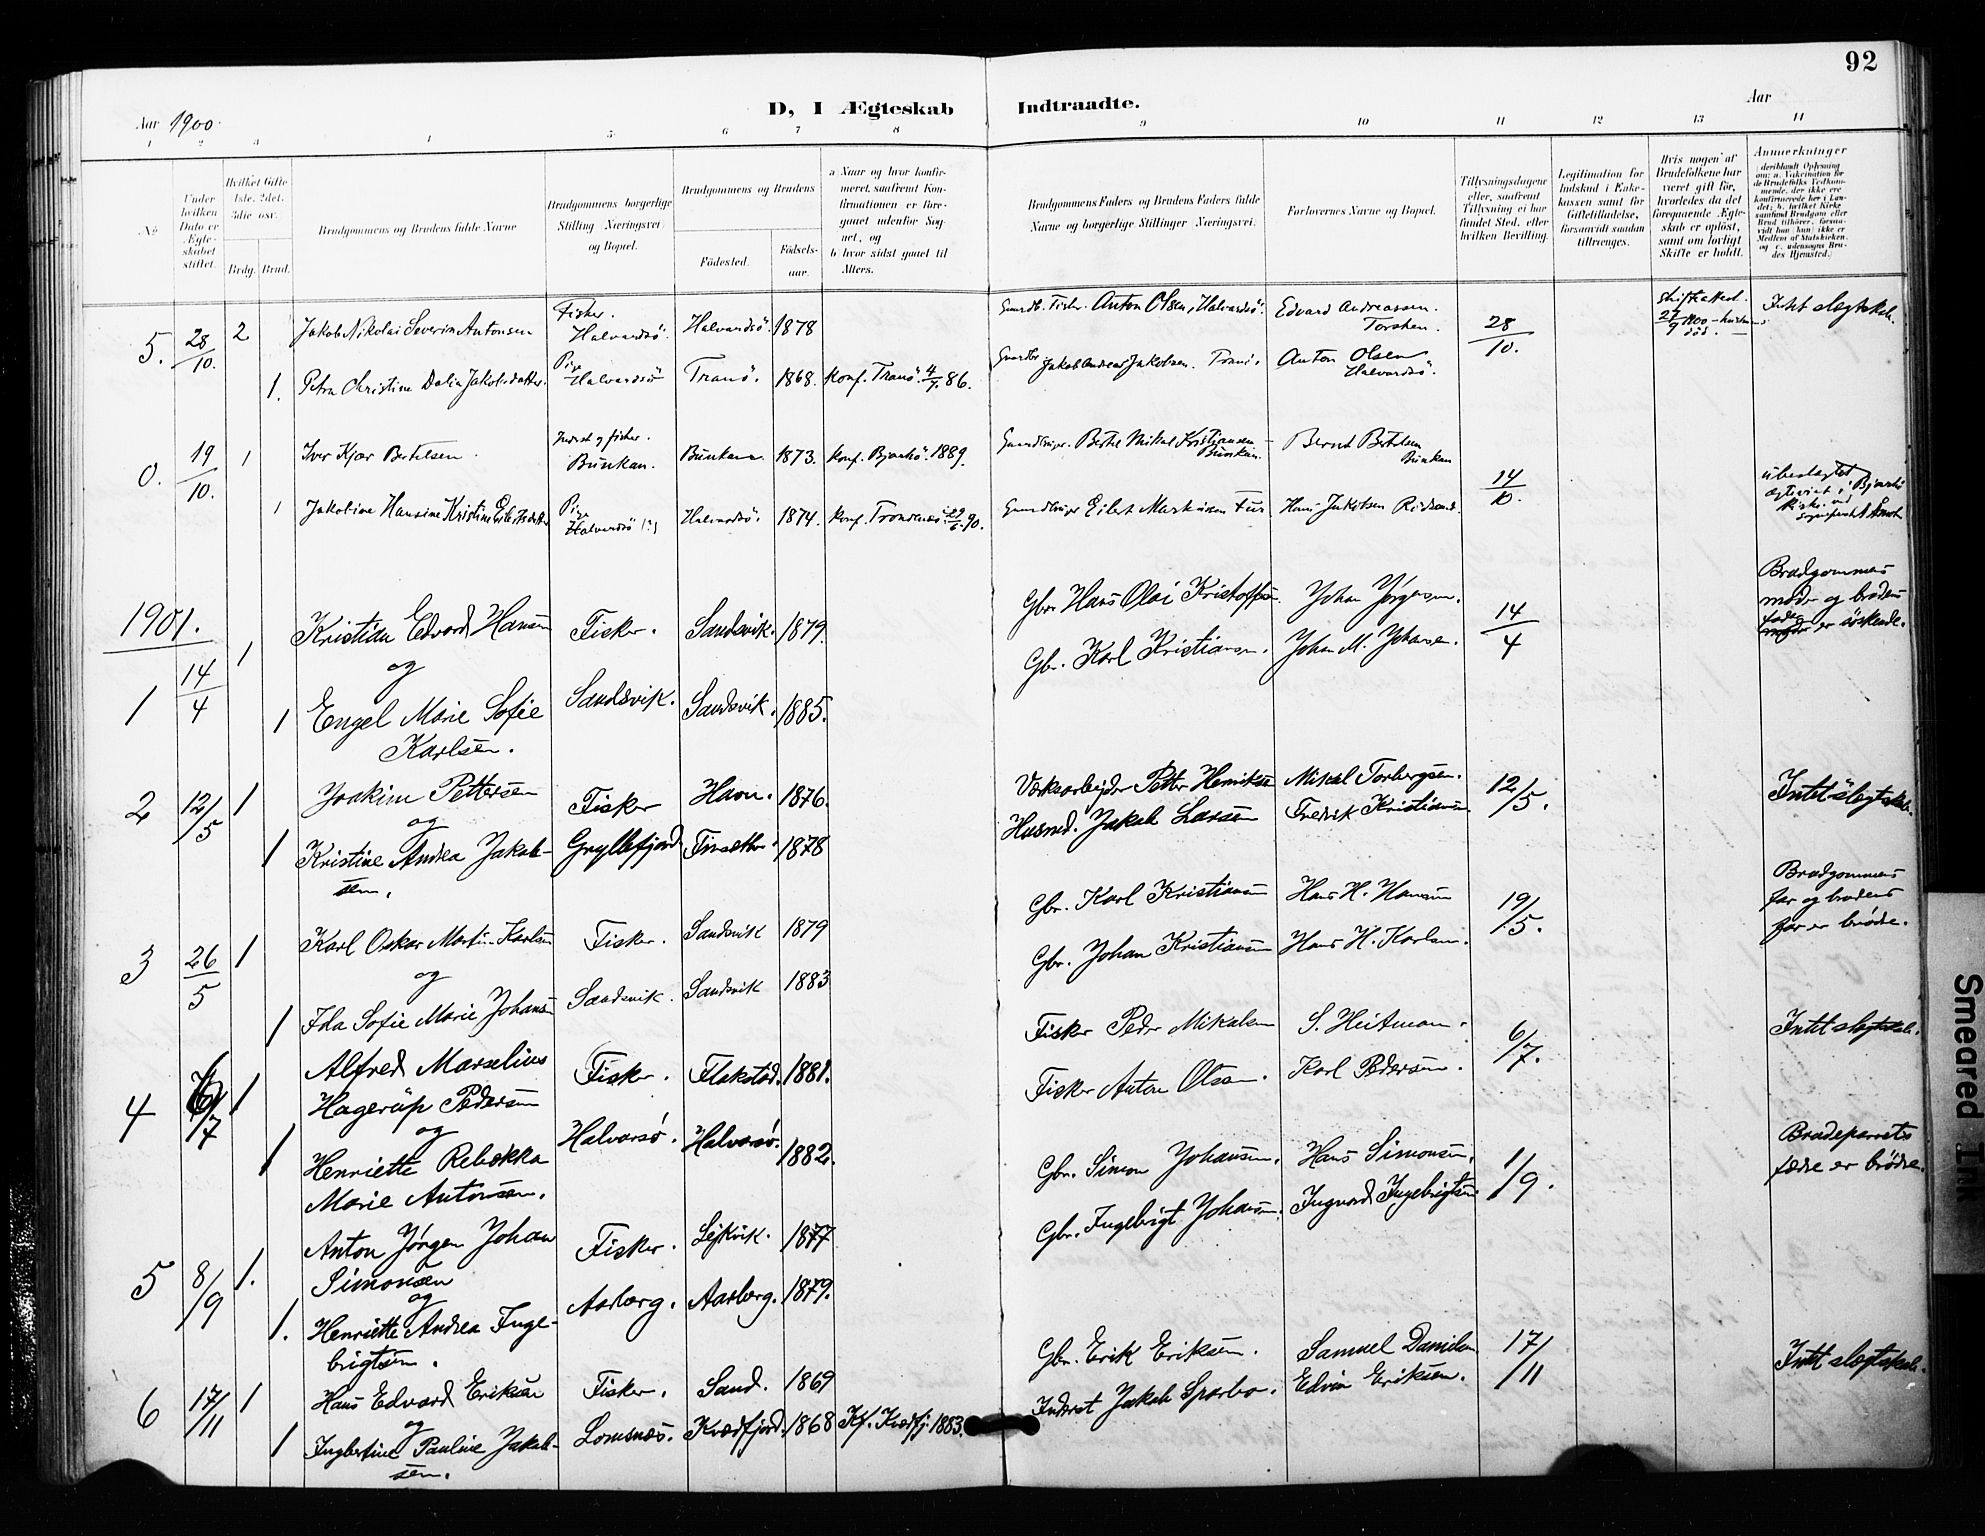 92
D, I Ægteskab Indtraadte.
Aar 1900.
Aar
1 2 3 4 5 6 7 8 9 10 11 12 13 14
No
Under hvilken Dato er Ægteskabet stiftet.
Hvilket Gifte 1ste, 2det, 3die osv.
Brdg. Brud.
Brudgommens og Brudens fulde Navne
Brudgommens borgerlige Stilling Næringsvei og Bopæl.
Brudgommens og Brudens
Fødested. Fødselsaar.
a Naar og hvor konfirmeret, saafremt Konfirmationen er foregaaet udenfor Sognet, og
b hvor sidst gaaet til Alters.
Brudgommens Faders og Brudens Faders fulde Navne og borgerlige Stillinger Næringsvei.
Forlovernes Navne og Bopæl.
Tillysningsdagene eller, saafremt Tillysning ei har fundet Sted, efter hvilken Bevilling.
Legitimation for Indskud i Enkekassen samt for Giftetilladelse, forsaavidt saadan tiltrænges.
Hvis nogen af Brudefolkene har været gift før, hvorledes da det foregaaende Ægteskab er opløst, samt om lovligt Skifte er holdt.
Anmerkninger
5. 28/10. 2 Jakob Nikolai Severin Antonsen Fisker. Halvardsö. Halvardsö. 1878 Anton Olsen, Halvardsö. Edvard Andreassen. Torsken. 28/10. Skifteattest 27/9 1900 Intet slegtskab.
1. Petra Christine Dalia Jakobsdatter. Pige Halvardsö Tranö. 1868. Konf. Tranö 4/7 86. Jakob Andreas Jakobsen. Anton Olsen Halvardsö.
0. 19/10. 1 Iver Kjær Bertelsen. Inderst og fisker. Bunkan. Bunkan. 1873. Konf. Bjarkö. 1889. Bertel Mikal Kristiansen Bunkan Bernt Bertelsen Bunkan 14/10.
1 Jakobine Hansine Kristine Eilertsdatter Pige Halvardsö (?) Halvardsö. 1874. Konf. Trondenæs 90. Eilert Markusen Hans Jakobsen
1901.
1 14/4 1 Kristian Edvard Hansen Fisker. Sandsvik. 1879. Gbr. Hans Olai Kristoffsen. Johan Jørgensen. 14/4 Brudgommens moder og brudens fader er söskende.
og
1 Engel Marie Sofie Karlsen. Sandsvik. Sandsvik. 1885. Gbr. Karl Kristiansen. Johan M. Johansen.
2 12/5 1 Joakim Pettersen Fisker Havn. 1876. Værkearbejder Petter Henriksen Mikal Torbergsen. 12/5. Intet slegtskab.
og
1 Kristine Andrea Jakobsen. Gryllefjord 1878 Husmd. Jakob Larsen Fredrik Kristiansen
3 26/5 1 Karl Oskar Martin Karlsen Fisker. Sandsvik 1879 Gbr. Karl Kristiansen Hans H. Hansen 19/5. Brudgommens far og brudens far er brödre.
og
1 Ida Sofie Marie Johansen Sandsvik. Sandsvik 1883 Gbr. Johan Kristiansen Hans H. Karlsen.
4 6/7 1 Alfred Marselius Hagerüp Pedersen Fisker. Flakstad. 1881. Fisker Peder Mikalsen S. Heitman. 6/7. Intet slegtskab.
og
1 Henriette Rebekka Marie Antonsen. Halvarsö. Halvarsö. 1882. Fisker Anton Olsen. Karl Pedersen.
5 8/9 1. Anton Jørgen Johan Simonsen Fisker. Lejkvik. 1877 Gbr. Simon Johansen. Hans Simonsen. 1/9. Brudeparrets fædre er brödre.
og
1. Henriette Andrea Ingebrigtsen. Aarberg. Aarberg. 1879. Gbr. Ingebrigt Johansen. Ingvard Ingebrigtsen
6 17/11 1 Hans Edvard Eriksen Fisker. Sand. 1869 Gbr. Erik Eriksen. Samuel Danielsen 17/11 Intet slegtskab.
og
1 Ingbertine Pauline Jakobsen. Lomsnæs. Kvædfjord. 1868 Kf. Kvædfj. 1883. Inderst Jakob Sparbo. Edvin Eriksen.
Smeared Ink